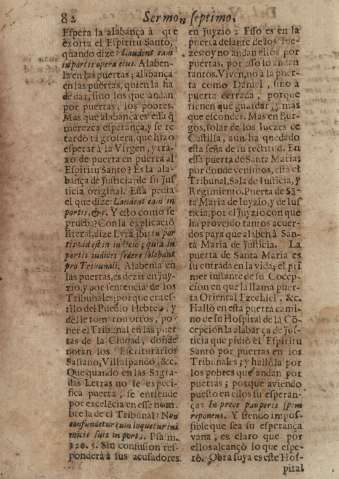 82 Sermon septimo,
Espera la alabança à que
exorta el Espiritu Santo,
quando dize: Laudent eam
in portis opera eius. Alaben-
la en las puertas; alabança
en las puertas, quien la ha
de dar, sino los que andan
por puertas, los pobres.
Mas que alabança es essa q̃
merezca esperança, y se re-
tardò tã grosera, que hizo
esperar à la Virgen, y tra-
xo de puerta en puerta al
Espiritu Santo? Es la ala-
bança de justicia, de su jus-
ticia original. Essa pedia
el que dize: Laudent eam in
portis, &c. Y esto como se
prueba? Con la explicaciõ
literal, dize Lyra
Tribunali, Alabenla en
las puertas, es dezir en juy-
zio, y por sentencia de los
Tribunales, porque era es-
tilo del Pueblo Hebreo, y
del le tomò
ner el Tribunal en las puer-
tas de la Ciudad, donde
notan los Escriturarios
Saliano, Villalpando, &c.
Que quando en las Sagra-
das Letras no se especi-
fica puerta, se entiende
por excelẽcia en esse nom-
bre la de el Tribunal: Non
confundetur cum loquetur ini-
micis suis in porta. Psa m.
126. 5. Sin confusion res-
ponderà à sus acusadores.
en Juyzio: Esso es en la
puerta delante de los Jue-
zes oy no andan ellos por
puertas, por esso lo andan
tantos. Viven, no à la puer-
ta como Daniel, sino à
puerta cerrada, porque
tienen que guardar, y mas
que esconder. Mas en Bur-
gos, solar de los Iuezes de
Castilla, aun ha quedado
esta seña de su rectitud. En
essa puerta de Santa Maria;
por donde venimos, està el
Tribunal, Sala de Iusticia, y
Regimiento. Puerta de Sã-
ta Maria de Iuyzio, y de Iuf-
ticia, por el Iuyzio con que
ha proveido tantos acuer-
dos para que alabẽ à San-
ta Maria de Iusticia. La
puerta de Santa Maria es
su entrada en la vida; el pri
mer instante de su Cõcep-
cion en que la llama puer-
ta Oriental Ezechiel, &c.
Hallò en esta puerta cami-
no de su Hospital de la Cõ-
cepcion la alabãça de Jus-
ticia que pidiò el Espiritu
Santo por puertas en los
Tribunales; y hallòla por
los pobres que andan por
puertas; porque aviendo
puesto en ellos su esperan-
ça: In prece pauperis spem
reponens. Y siendo impos-
sible que sea su esperança
vana, es claro que por
ellos alcançò lo que espe-
rò. Obra suya es este Hos-
pital